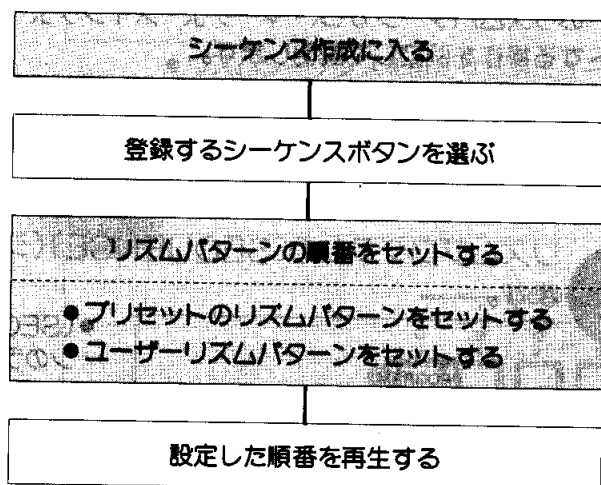 シーケンス作成に入る
登録するシーケンスボタンを選ぶ
リズムパターンの順番をセットする
●プリセットのリズムパターンをセットする
●ユーザーリズムパターンをセットする
設定した順番を再生する